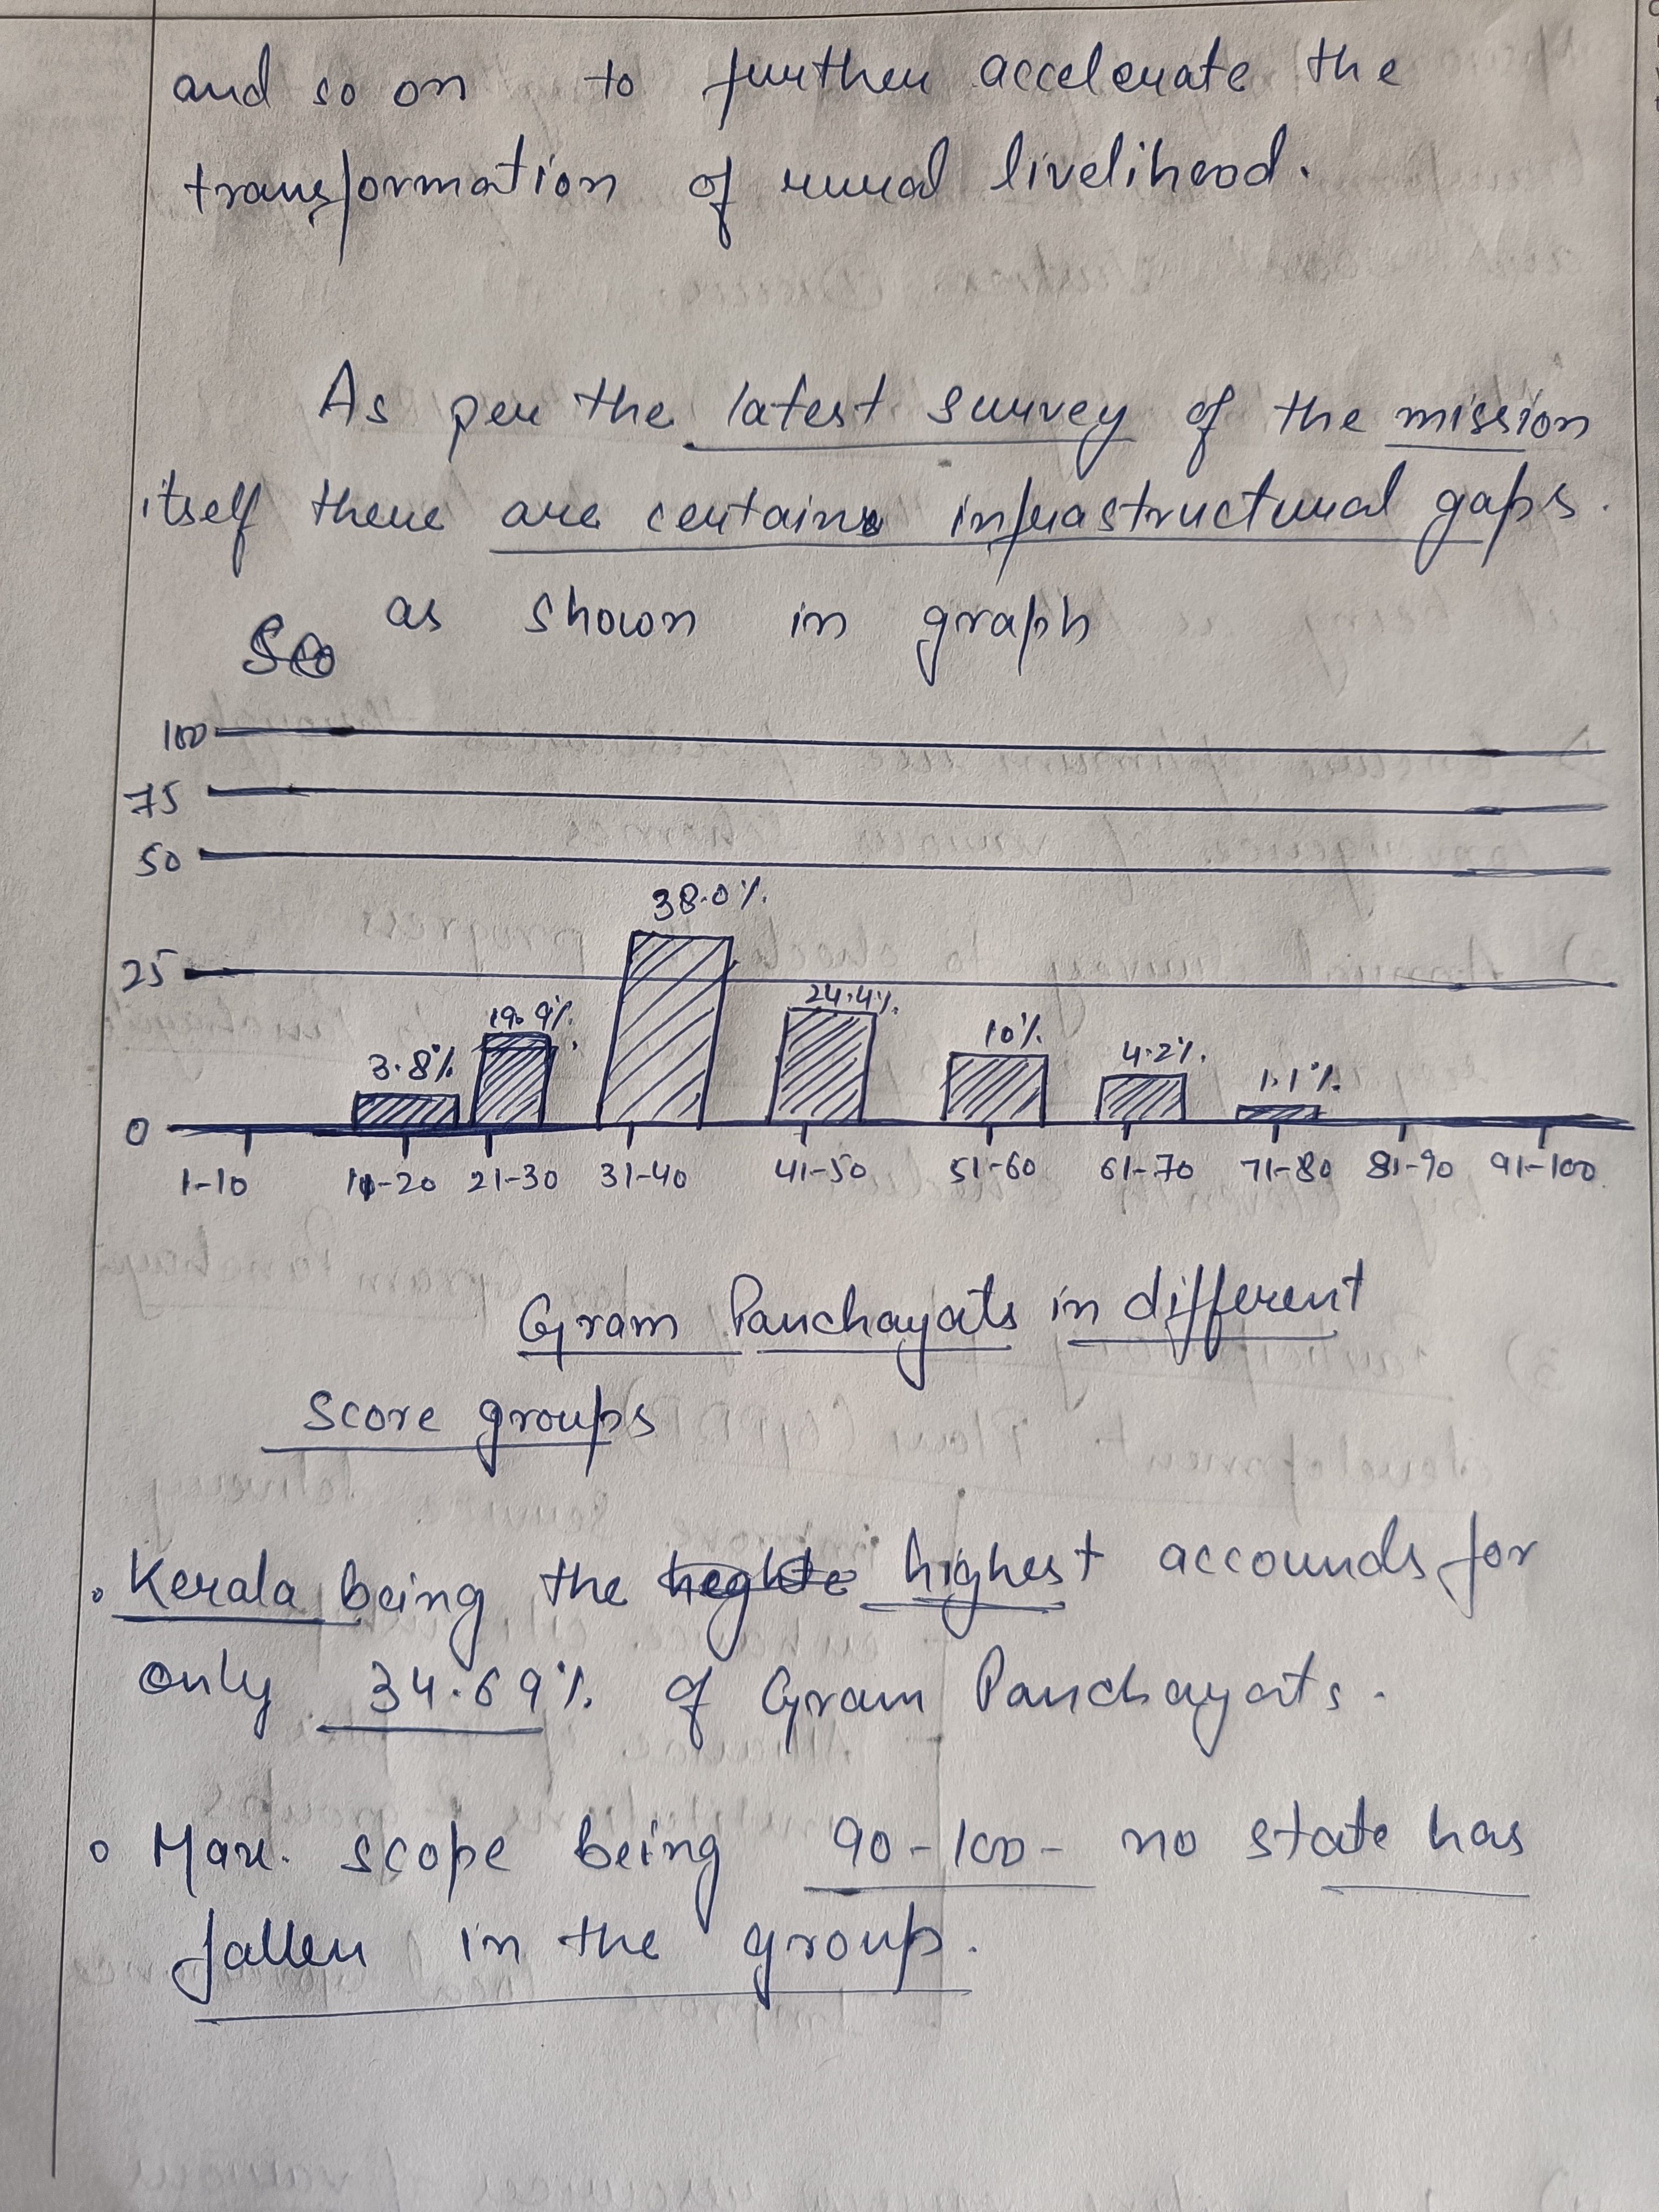 and so on to further accelerate the
transformation of rural livelihood.
As per the latest survey of the mission
itself there are certain infrastructural gaps.
as shown in graph
100
75
50
38.0%.
25
24.4%.
19.9%.
10%.
3.8%
4.2%.
1.1%.
0
1-10 11-20 21-30 31-40 41-50 51-60 61-70 71-80 81-90 91-100
Gram Panchayats in different
Score groups
• Kerala being the highest accounds for
only 34.69%. of Gram Panchayats.
• Max. scope being 90-100- no state has
fallen in the group.